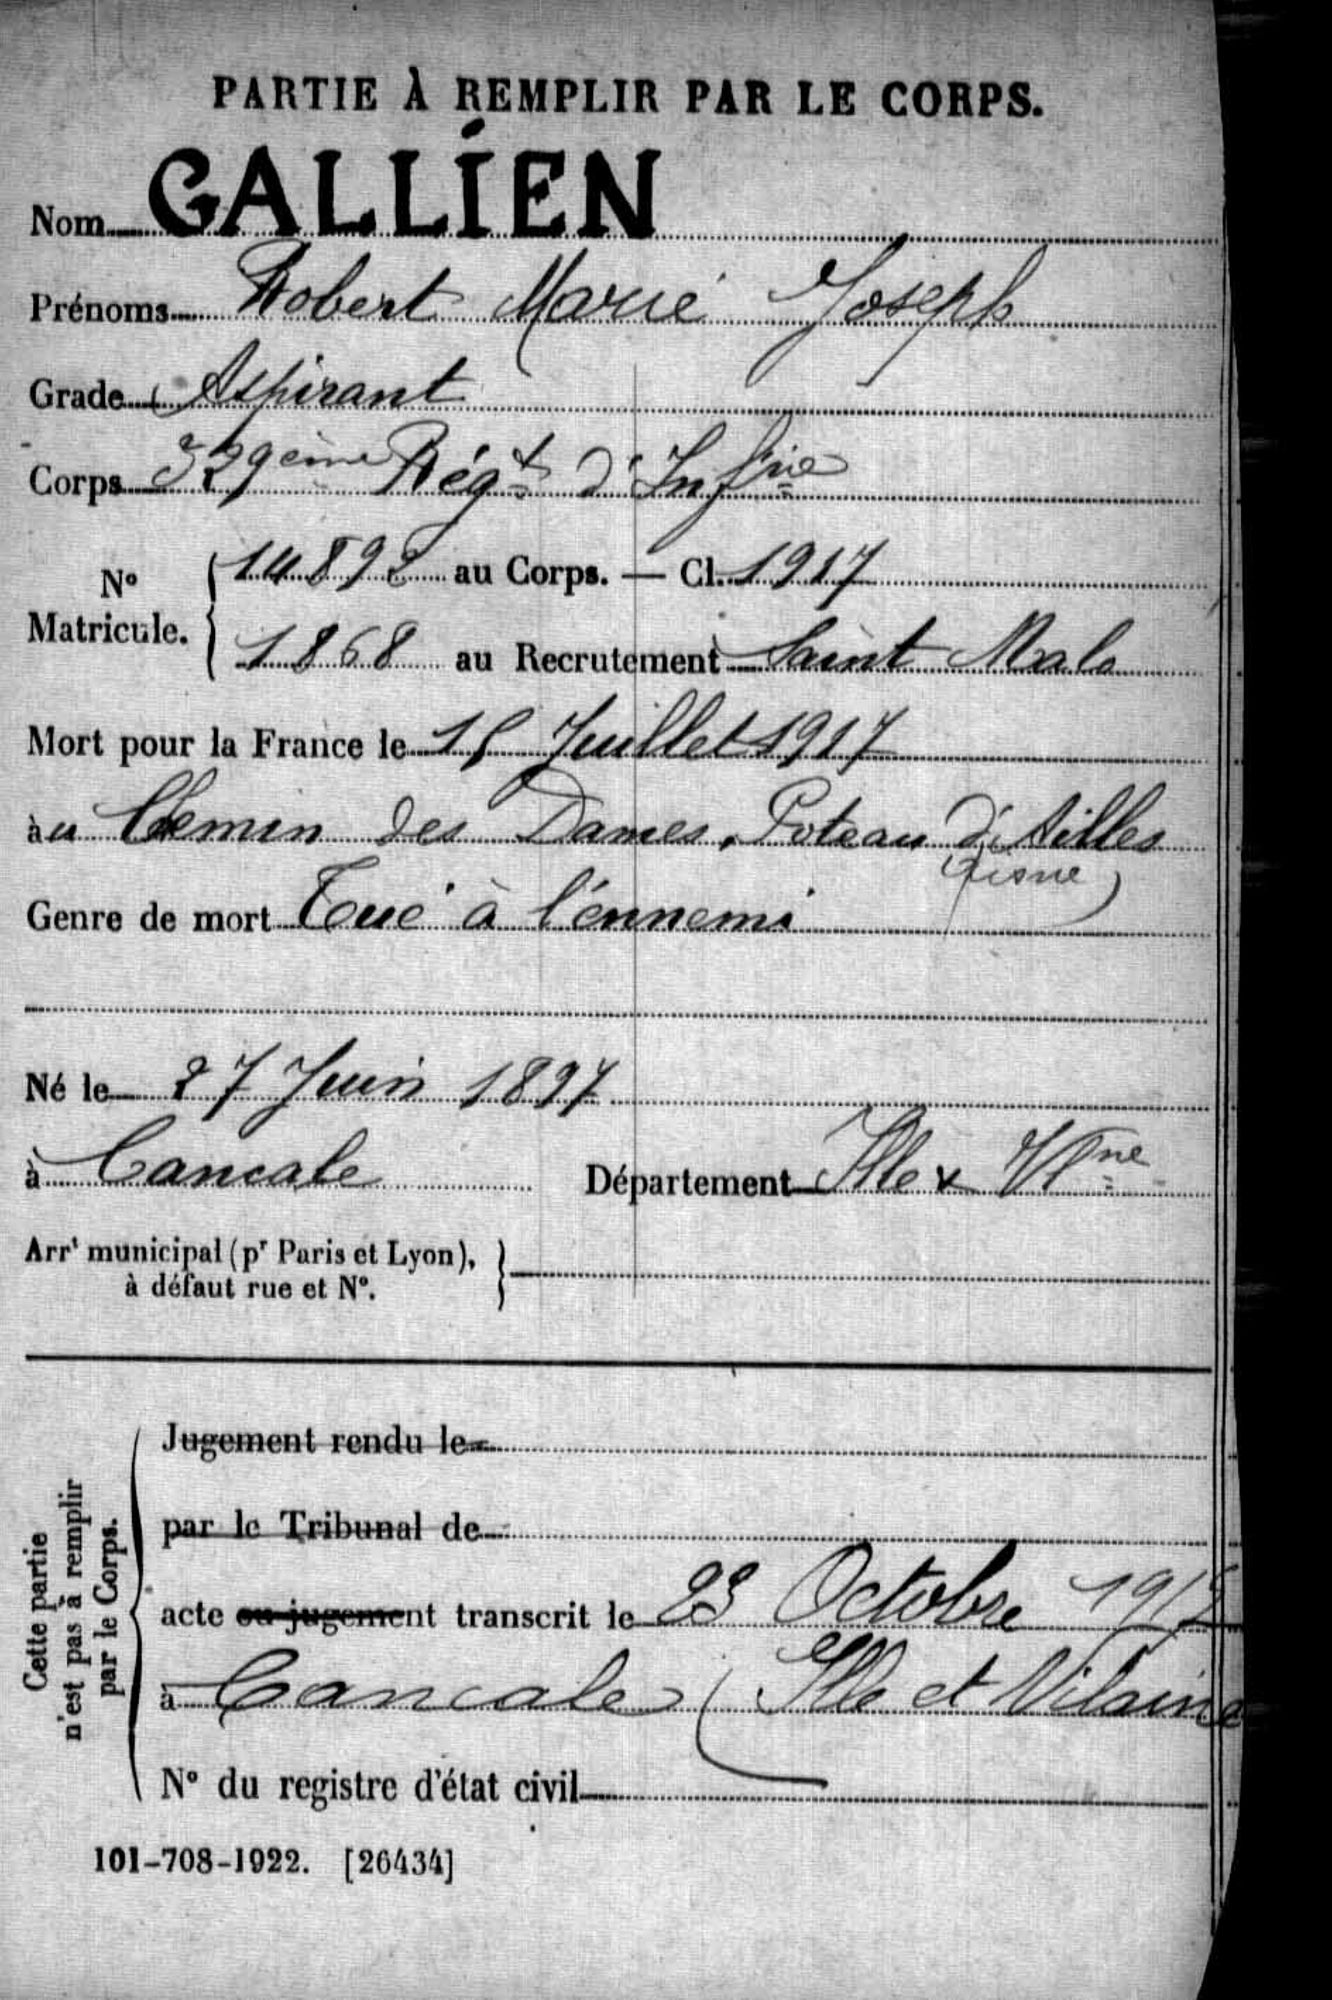 PARTIE À REMPLIR PAR LE CORPS.
Nom GALLIEN
Prénoms Robert Marie Joseph
Grade Aspirant
Corps 329ème Régt d'Infrie
N° Matricule. { 14892 au Corps. — Cl. 1917
1868 au Recrutement Saint Malo
Mort pour la France le 15 Juillet 1917
àu Chemin des Dames, Poteau d'Ailles
(Aisne)
Genre de mort Tué à l'ennemi
Né le 27 Juin 1897
à Cancale Département Ille & Vne
Arrt municipal (pr Paris et Lyon), à défaut rue et N°. }
Cette partie n'est pas à remplir par le Corps.
Jugement rendu le
par le Tribunal de
acte ou jugement transcrit le 23 Octobre
à Cancale (Ille et Vilaine
N° du registre d'état civil
101-708-1922. [26434]